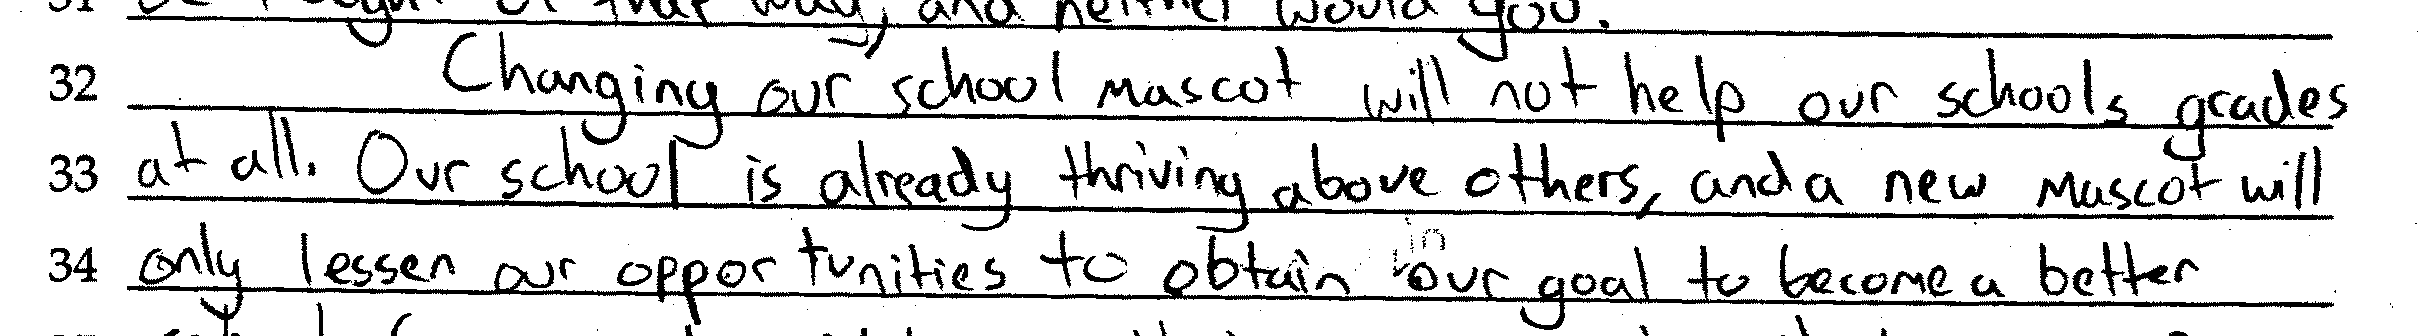 31 thought of that way, and neither would you.
32 Changing our school mascot will not help our schools grades
33 at all. Our school is already thriving above others, and a new mascot will
34 only lessen our opportunities to obtain our goal to become a better